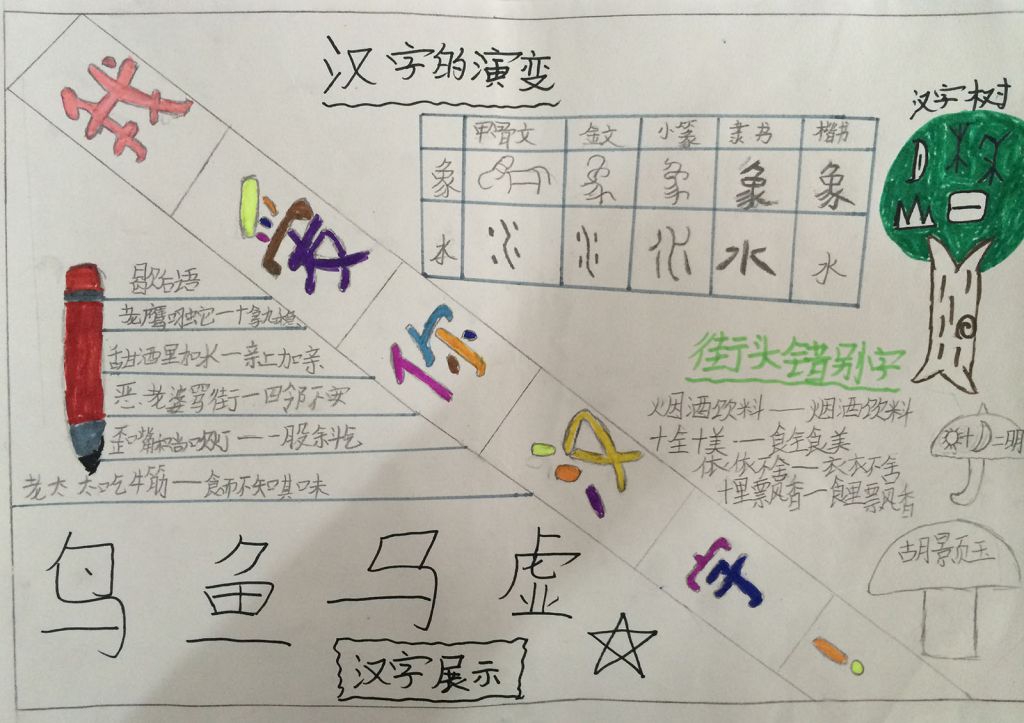 汉字的演变
我爱你汉字！
甲骨文 金文 小篆 隶书 楷书
象 象 象
水 水 水
汉字树
歇后语
老鹰叼蛇—十拿九稳
甜酒里加水—亲上加亲
恶老婆骂街—四邻不安
歪嘴和尚吹灯——股斜气
老太太吃牛筋——食而不知其味
街头错别字
烟酒饮料——烟洒饮料
十全十美——食全食美
依依不舍—衣衣不舍
十里飘香—食里飘香
=明
胡颢玉
乌 鱼 马 虚
汉字展示